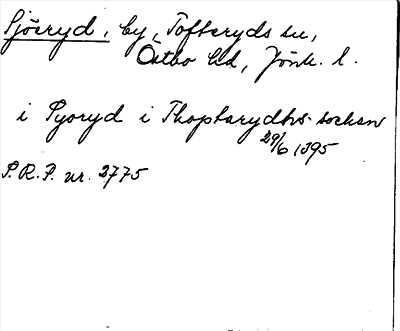 Sjöaryd, by, Toftaryds sn,
Östbo hd, Jönk. l.
i Syoryd i Thoptarydhs sochen
29/6 1395
S.R.P. nr. 2775